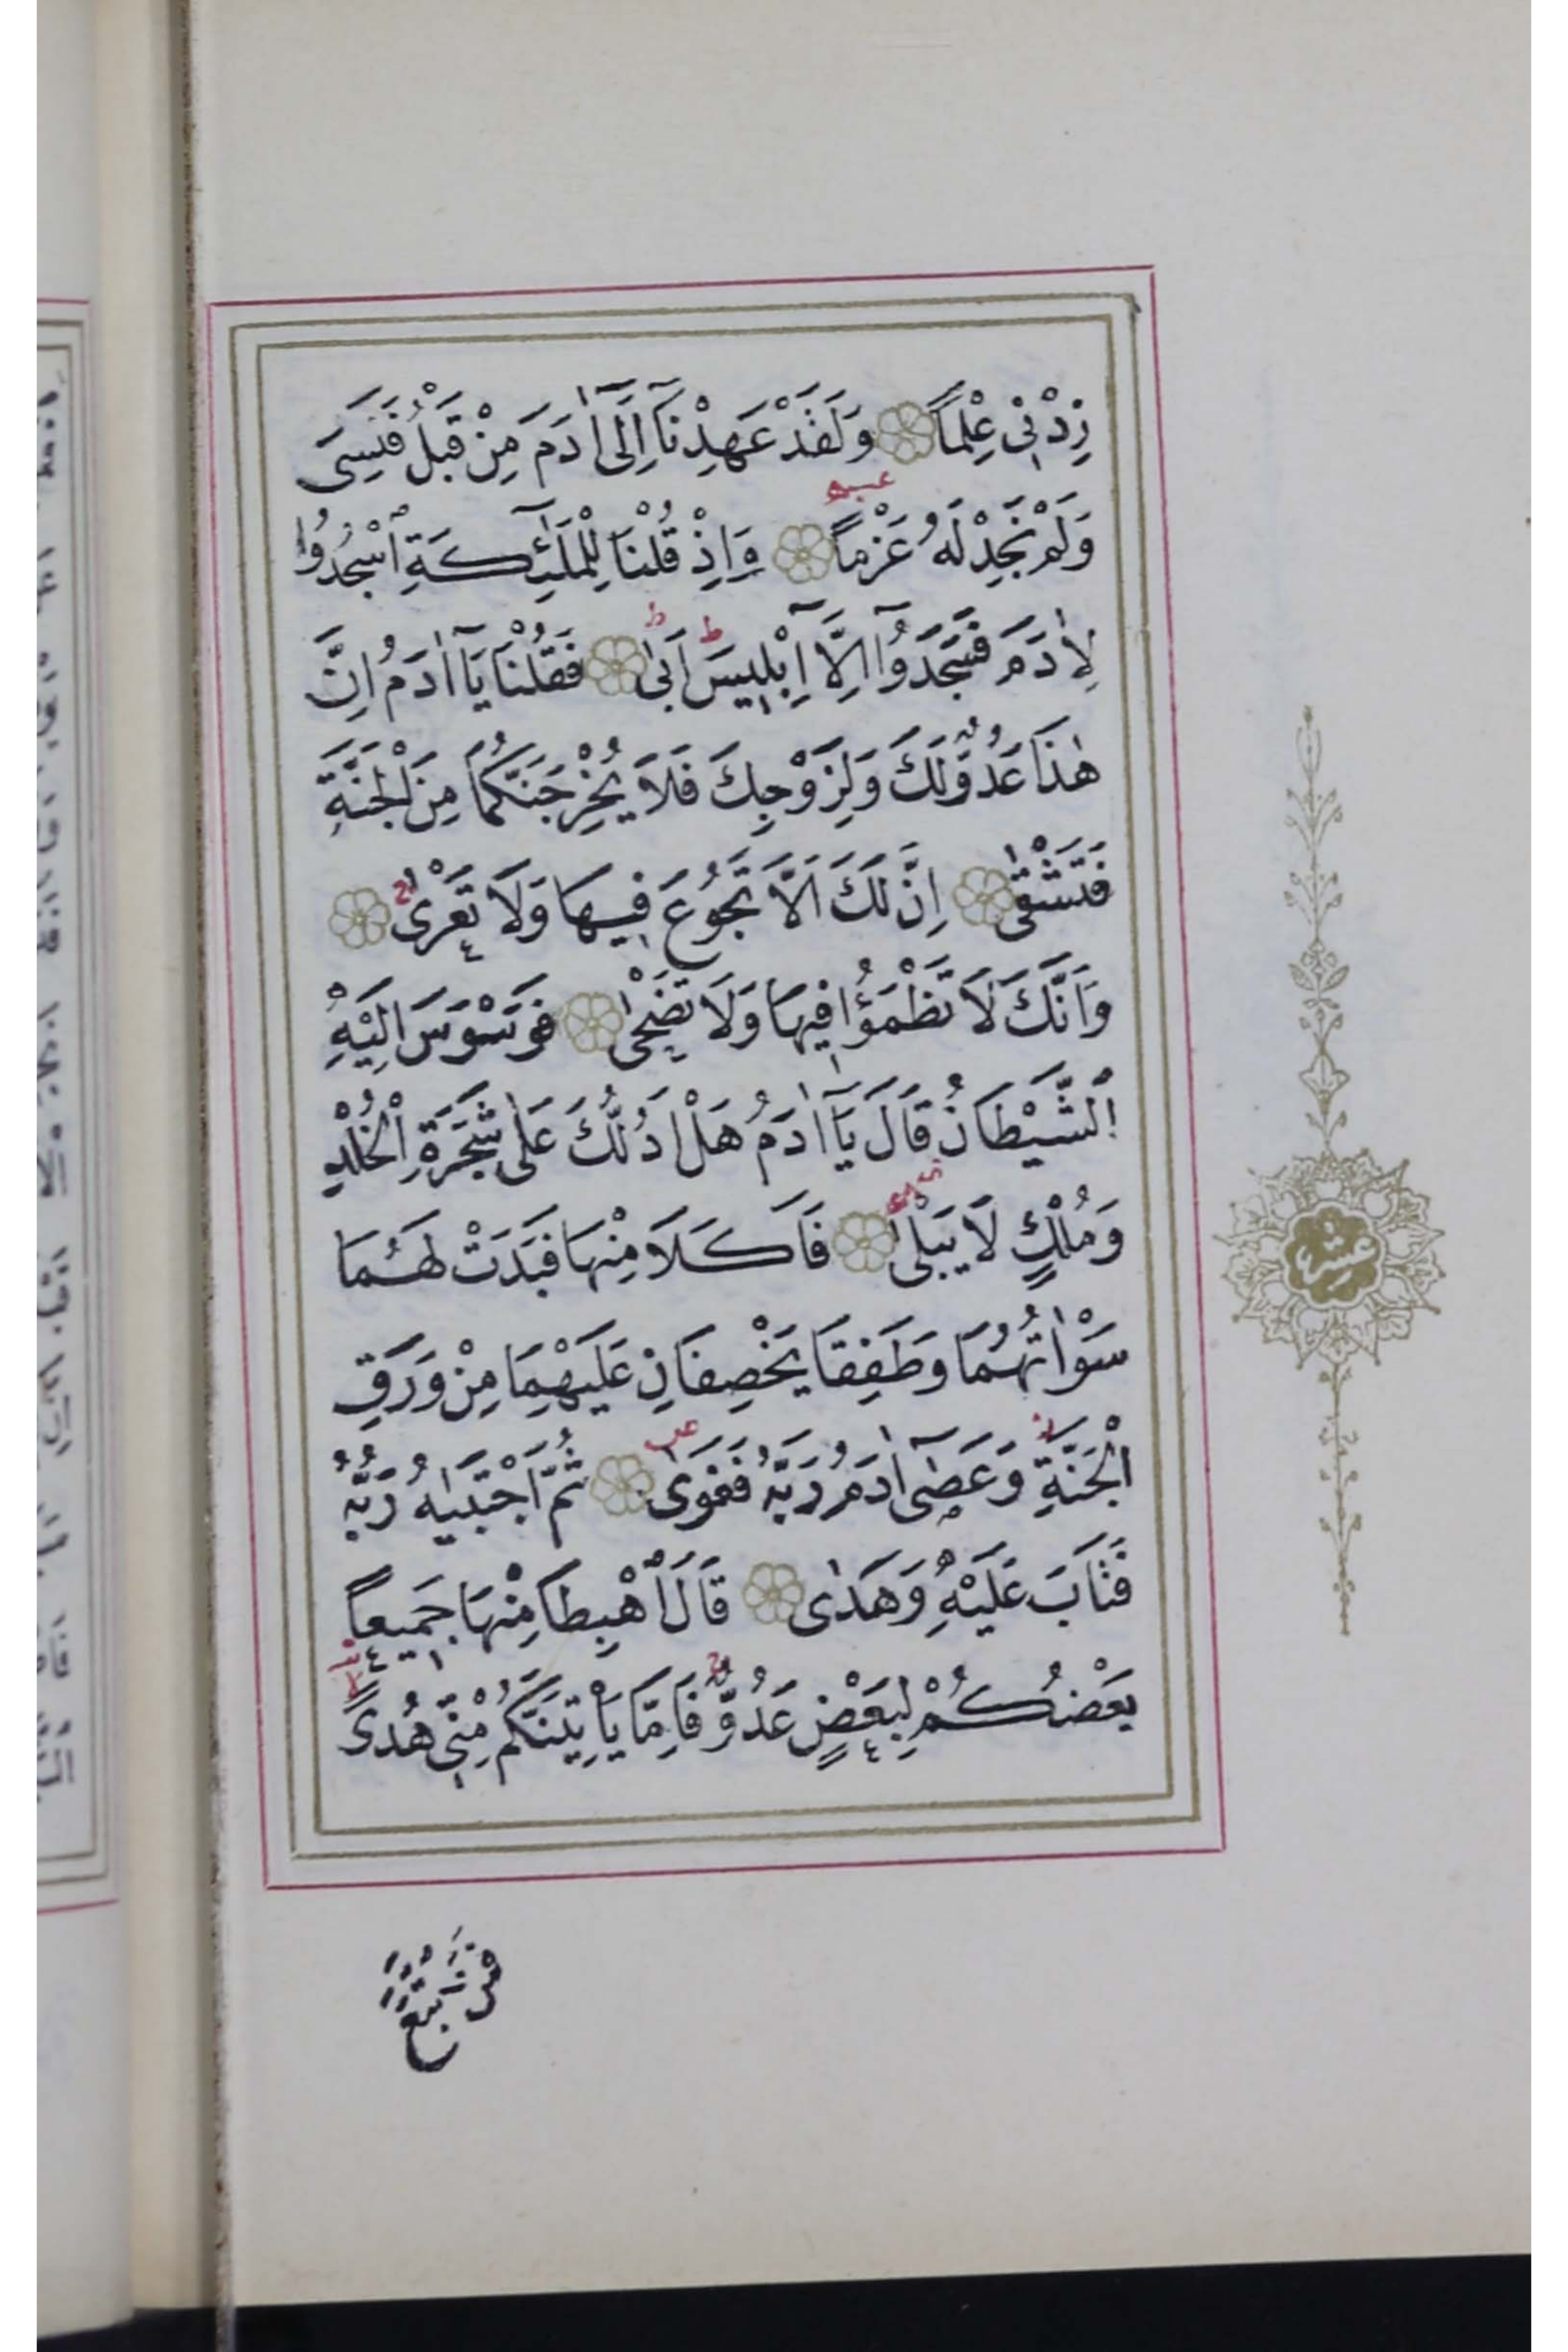 زِدْنِي عِلْمًا وَلَقَدْ عَهِدْنَآ اِلٰٓى اٰدَمَ مِنْ قَبْلُ فَنَسِيَ
وَلَمْ نَجِدْ لَهُ عَزْمًا وَاِذْ قُلْنَا لِلْمَلٰٓئِكَةِ اسْجُدُوا
لِاٰدَمَ فَسَجَدُوٓا اِلَّآ اِبْلِيسَ اَبٰى فَقُلْنَا يَآ اٰدَمُ اِنَّ
هٰذَا عَدُوٌّ لَكَ وَلِزَوْجِكَ فَلَا يُخْرِجَنَّكُمَا مِنَ الْجَنَّةِ
فَتَشْقٰى اِنَّ لَكَ اَلَّا تَجُوعَ فِيهَا وَلَا تَعْرٰى
وَاَنَّكَ لَا تَظْمَؤُا فِيهَا وَلَا تَضْحٰى فَوَسْوَسَ اِلَيْهِ
الشَّيْطَانُ قَالَ يَآ اٰدَمُ هَلْ اَدُلُّكَ عَلٰى شَجَرَةِ الْخُلْدِ
وَمُلْكٍ لَا يَبْلٰى فَاَكَلَا مِنْهَا فَبَدَتْ لَهُمَا
سَوْاٰتُهُمَا وَطَفِقَا يَخْصِفَانِ عَلَيْهِمَا مِنْ وَرَقِ
الْجَنَّةِ وَعَصٰٓى اٰدَمُ رَبَّهُ فَغَوٰى ثُمَّ اجْتَبٰيهُ رَبُّهُ
فَتَابَ عَلَيْهِ وَهَدٰى قَالَ اهْبِطَا مِنْهَا جَمِيعًا
بَعْضُكُمْ لِبَعْضٍ عَدُوٌّ فَاِمَّا يَاْتِيَنَّكُمْ مِنِّي هُدًى
عشر